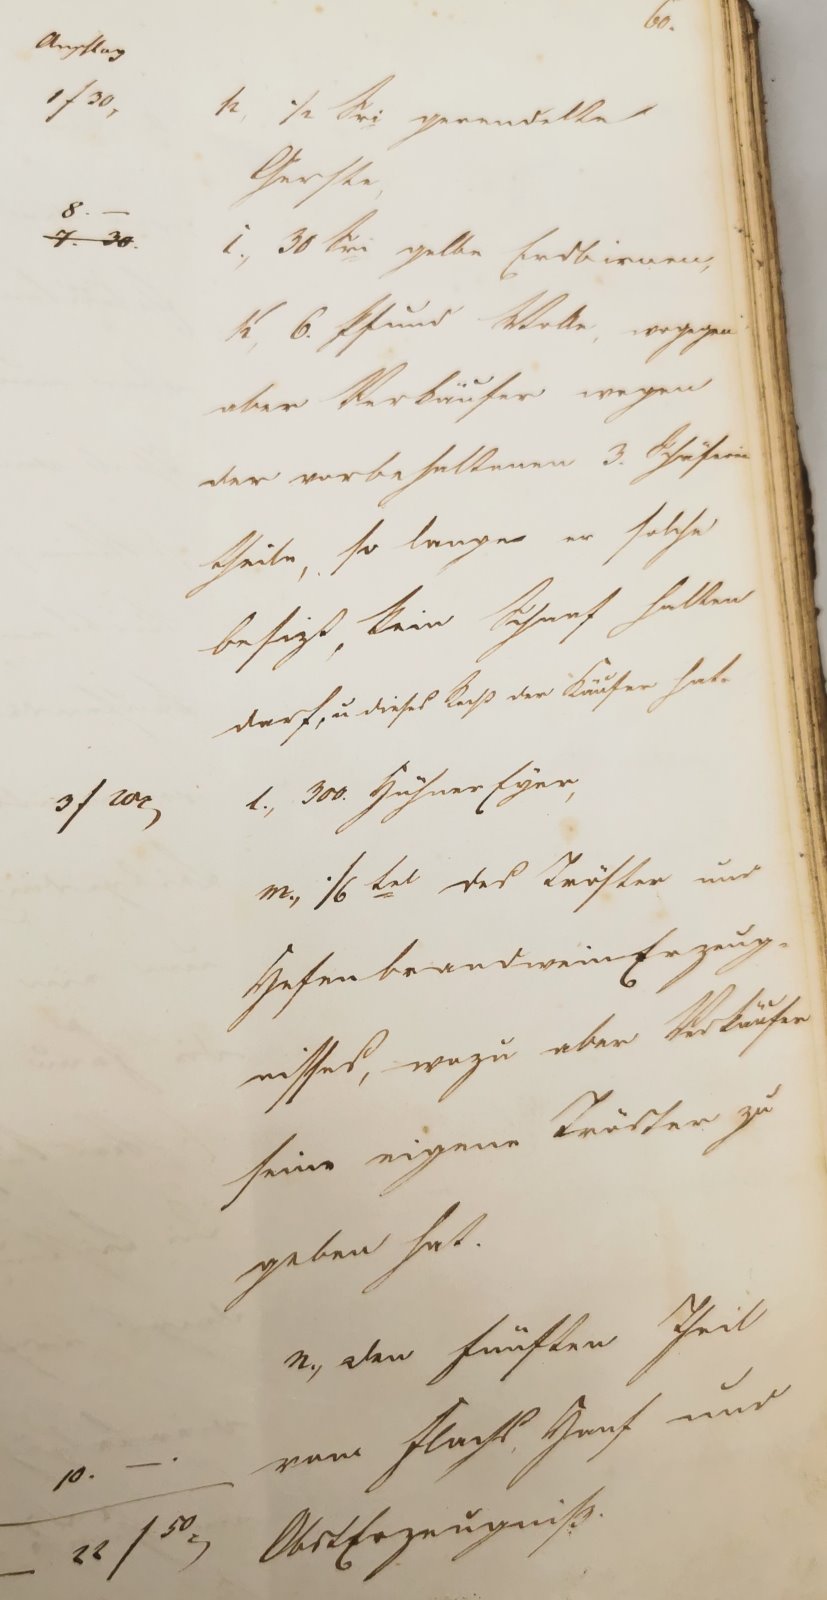 60.
Anschlag
1 f 30,
h, 1/2 Sri gerendelte
Gerste,
8. —
7. 30.
i., 30 Sri gelbe Erdbirnen,
k, 6. Pfund Wolle, wogegen
aber Verkäufer wegen
der vorbehaltenen 3.
theile, so lange er solche
besizt, kein Schaaf halten
darf, u dieses Recht der Käufer hat.
3 f
l., 300. Hühner Eyer,
m., 1/6 tel des Tröster und
Hefenbrandwein Erzeug-
nisses, wozu aber Verkäufer
seine eigene Tröster zu
geben hat.
n., den fünften Theil
vom Flachs, Hanf und
10. —.
ObstErzeugniß.
22 f 50